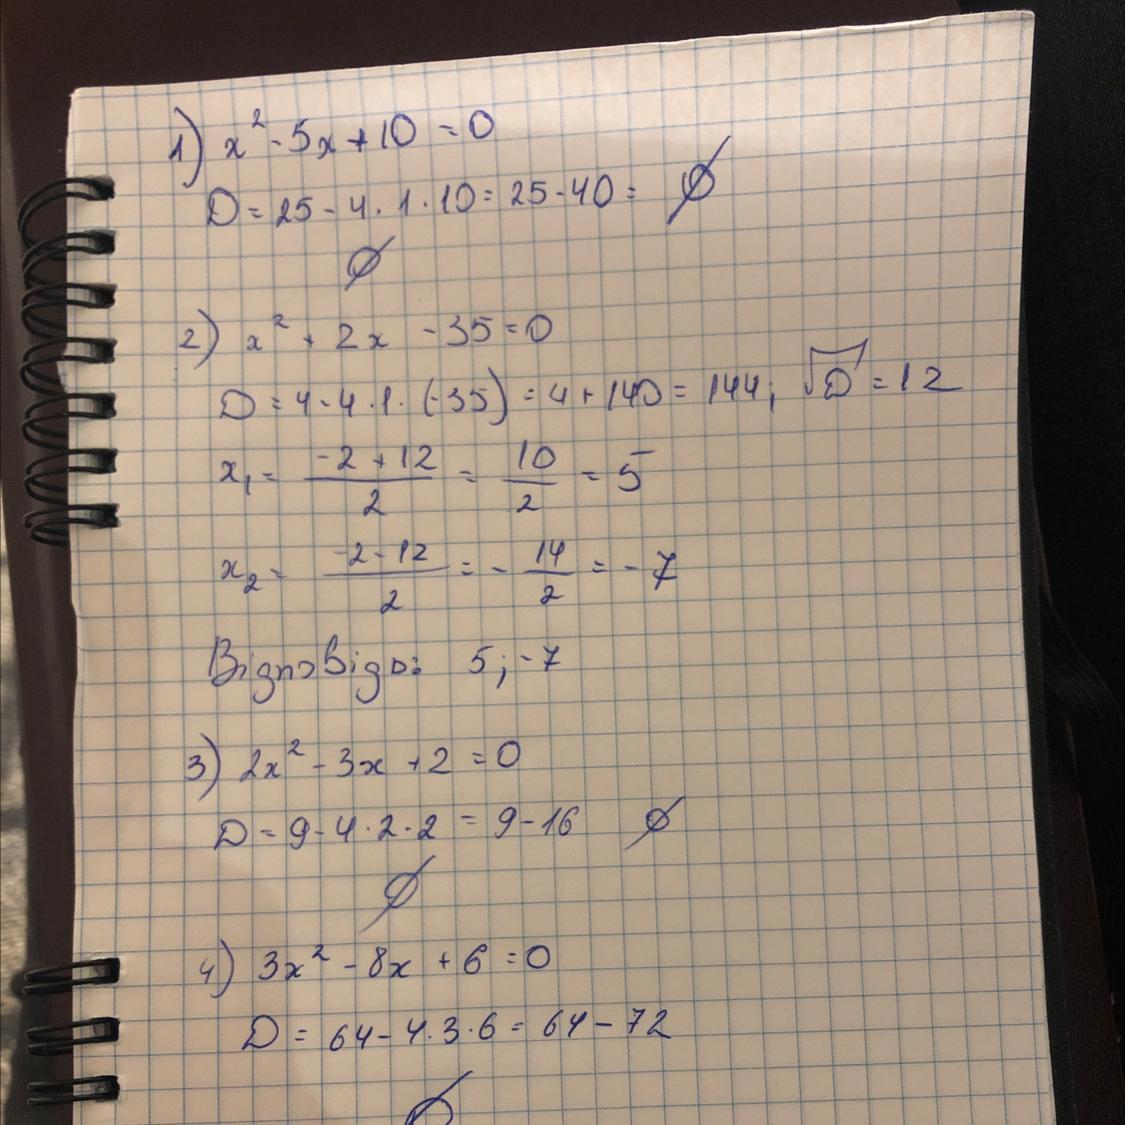 1) x² - 5x + 10 = 0
D = 25 - 4 · 1 · 10 = 25 - 40 = ∅
∅
2) x² + 2x - 35 = 0
D = 4 - 4 · 1 · (-35) = 4 + 140 = 144; √D = 12
x₁ = (-2 + 12)/2 = 10/2 = 5
x₂ = (-2 - 12)/2 = - 14/2 = - 7
Відповідь: 5; -7
3) 2x² - 3x + 2 = 0
D = 9 - 4 · 2 · 2 = 9 - 16 ∅
∅
4) 3x² - 8x + 6 = 0
D = 64 - 4 · 3 · 6 = 64 - 72
∅